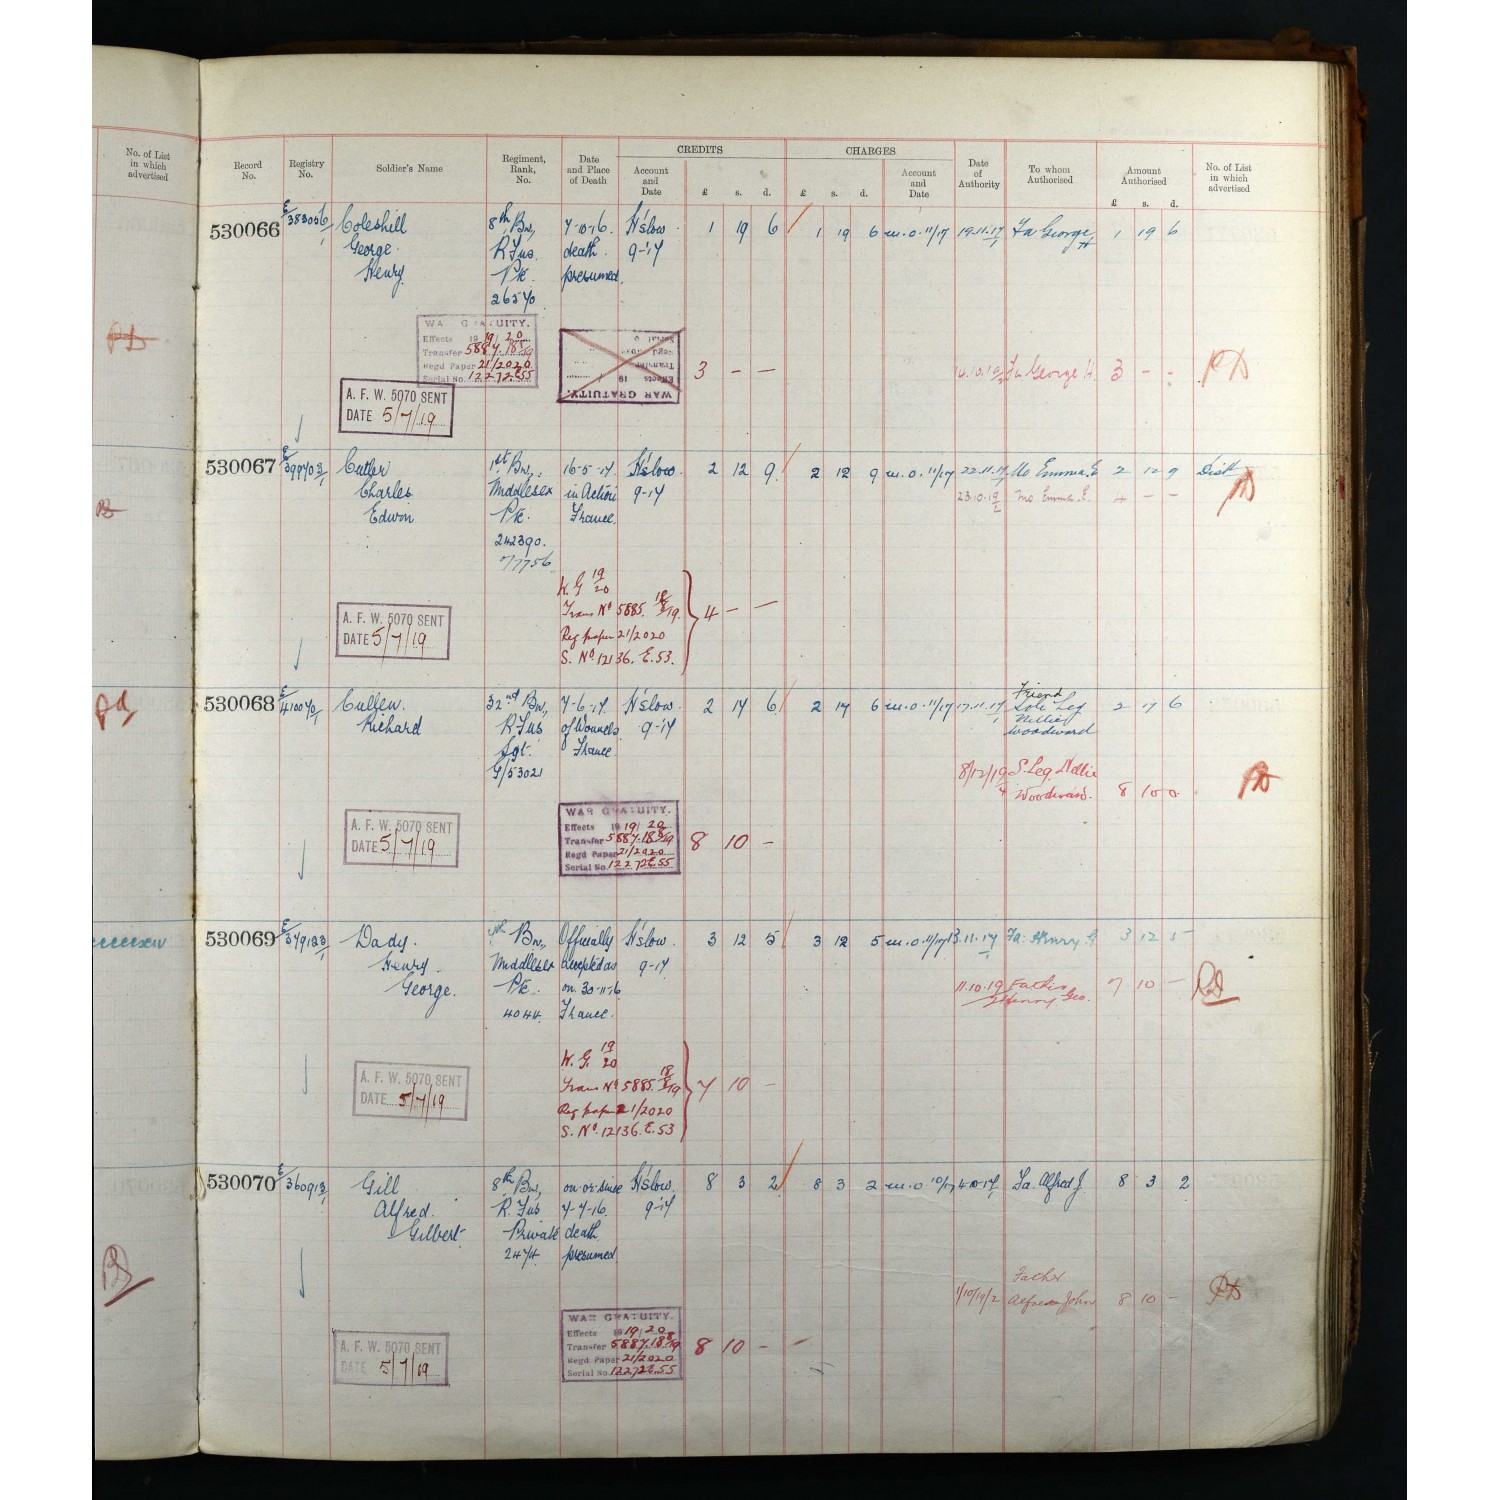 No. of List
in which
advertised
Record
No.
Registry
No.
Soldier's Name
Regiment,
Rank,
No.
Date
and Place
of Death
CREDITS
Account
and
Date
£ s. d.
CHARGES
£ s. d.
Account
and
Date
Date
of
Authority
To whom
Authorised
Amount
Authorised
£ s. d.
No. of List
in which
advertised
530066 E/383056/1 Coleshill 8th Bn, 7-10-16. H'slow. 1 19 6 1 19 6 m.o. 11/17 19.11.17 Fa George 1 19 6
George R Fus. death 9-17 H
Henry Pte. presumed.
26570
WAR GRATUITY.
Effects 1919/20
Transfer 5887.18/8/19
Regd Paper 21/2020
Serial No. 12272E55
WAR GRATUITY.
Effects 19
3 — — 14.10.19 Fa George H. 3 - - PD
A. F. W. 5070 SENT
DATE 5/7/19
530067 E/399703/1 Cutler 1st Bn, 16-5-17 H'slow. 2 12 9 2 12 9 m.o. 11/17 22.11.17 Mo Emma E 2 12 9 Dist
Charles Middlesex in Action 9-17 23.10.19 Mo Emma E. 4 — —
Edwin Pte. France.
242390.
77756
W. G 19/20
Trans No 5885. 18/8/19.
Reg paper 21/2020
S. No. 12136. E.53.
4 — —
A. F. W. 5070 SENT
DATE 5/7/19
530068 E/410070/1 Cullen. 32nd Bn, 7-6-17. H'slow 2 17 6 2 17 6 m.o. 11/17 17.11.17 Friend 2 17 6
Richard R. Fus of Wounds 9-17 Sole Leg
Sgt. France Nellie
G/53021 Woodward
8/12/19 S. Leg. Nellie
Woodward. 8 10 0. PD
WAR GRATUITY.
Effects 1919/20
Transfer 5887.18/8/19
Regd Paper 21/2020
Serial No. 12272E.55
8 10 -
A. F. W. 5070 SENT
DATE 5/7/19
530069 E/379123/1 Dady. Bn, Officially H'slow. 3 12 5 3 12 5 m.o. 11/17 13.11.17 Fa: Henry G 3 12 5
Henry. Middlesex accepted as 9-17
George. Pte. on 30-11-16 11.10.19 Father 7 10 —
4044. France. Henry Geo.
W. G. 19/20
Trans No 5885. 18/8/19
Reg paper 21/2020
S. No. 12136. E.53
7 10 -
A. F. W. 5070 SENT
DATE 5/7/19
530070 E/360913/1 Gill 8th Bn, on or since H'slow. 8 3 2 8 3 2 m.o. 10/17 4.10.17 Fa. Alfred J. 8 3 2
Alfred. R. Fus 7-7-16. 9-17
Gilbert. Private death
2474. presumed
1/10/19/2 Father
Alfred John 8 10 — PD
WAR GRATUITY.
Effects 1919/20
Transfer 5887.18/8/19
Regd Paper 21/2020
Serial No. 12272E.55
8 10 -
A. F. W. 5070 SENT
DATE 5/7/19